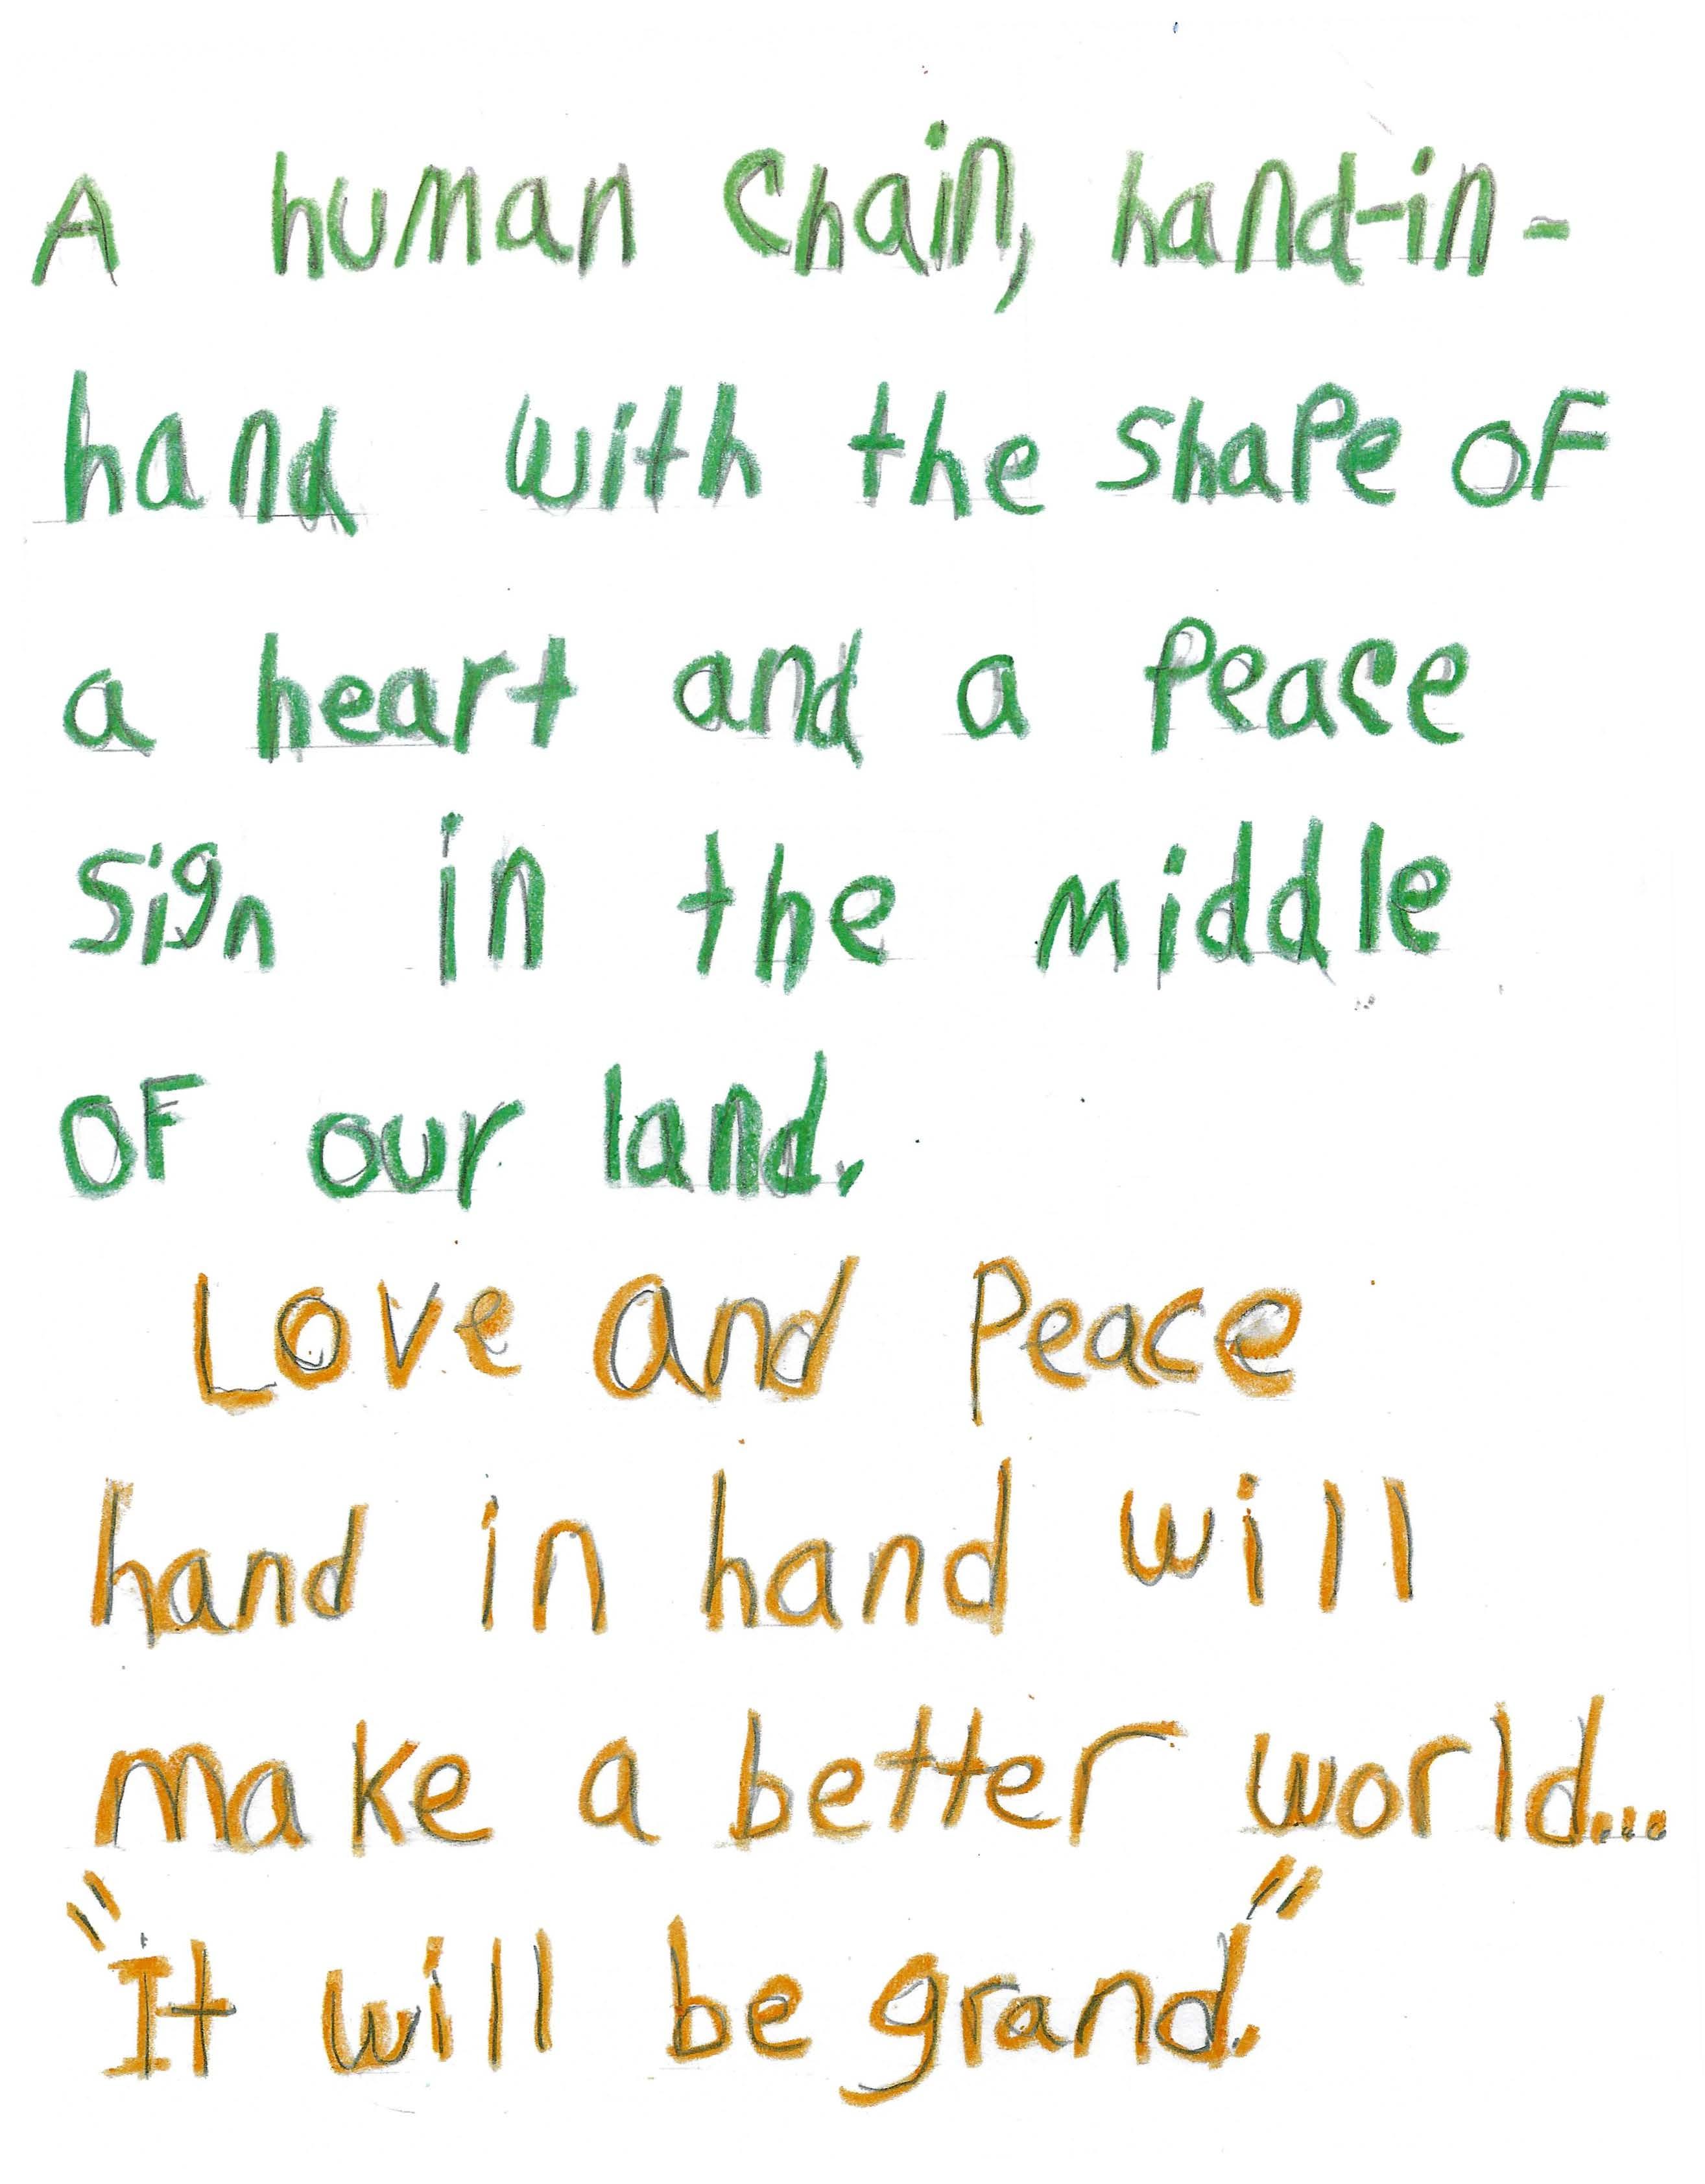 A human Chain, hand-in-
hand with the shape of
a heart and a peace
sign in the middle
of our land.
Love and Peace
hand in hand will
make a better world...
"It will be grand."